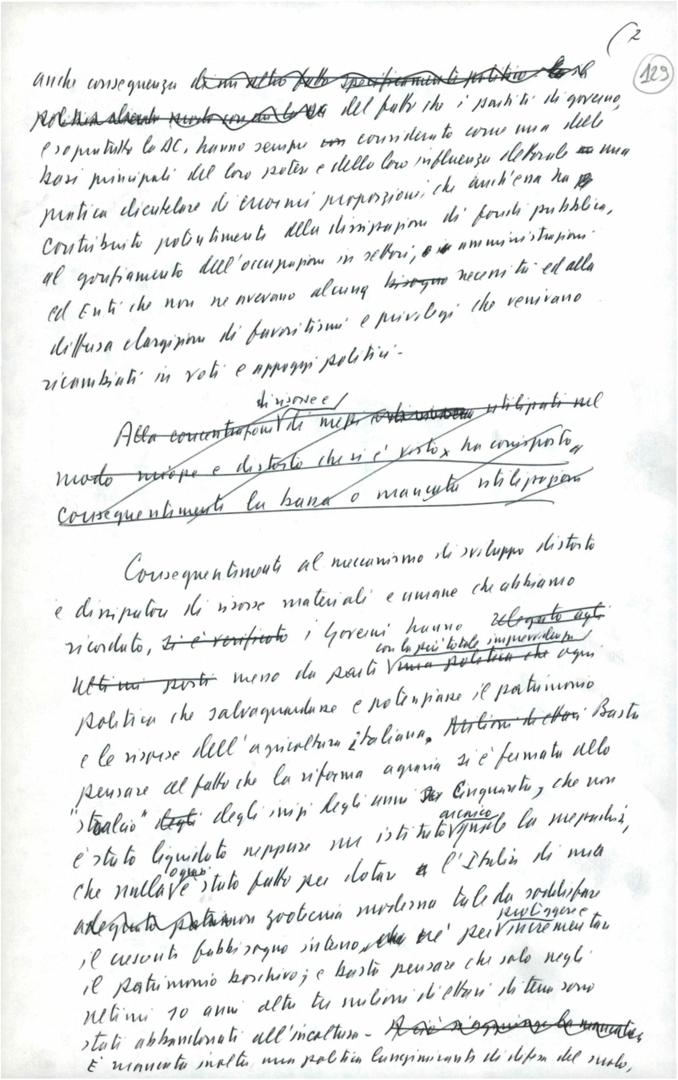 (2
129
anche conseguenza di un altro fatto specificamente politico. La
politica clientelare del fatto che i partiti di governo,
e soprattutto la DC, hanno sempre con considerato come una delle
basi principali del loro potere e della loro influenza elettorale una
pratica clientelare di enormi proporzioni, che anch'essa ha
contribuito potentemente alla dissipazione di fondi pubblici,
al gonfiamento dell'occupazione in settori, amministrazioni
ed Enti che non ne avevano alcuna bisogno necessità ed alla
diffusa elargizione di favoritismi e privilegi che venivano
ricambiati in voti e appoggi politici.
di risorse e
Alla concentrazione di mezzi utilizzati nel
modo miope e distorto che si è visto, ha corrisposto
conseguentemente la bassa o mancata utilizzazione
Conseguentemente al meccanismo di sviluppo distorto
e dissipatore di risorse materiali e umane che abbiamo
ricordato, si è verificato i Governi hanno relegato agli
con la più totale imprevidenza
ultimi posti messo da parte una politica che ogni
politica che salvaguardasse e potenziasse il patrimonio
e le risorse dell'agricoltura italiana. Milioni di ettari Basta
pensare al fatto che la riforma agraria si è fermata allo
"stralcio" degli degli inizi degli anni Cinquanta, che non
arcaico
è stato liquidato neppure un istituto quale la mezzadria,
oggi
che nulla è stato fatto per dotare l'Italia di una
adeguata zootecnia moderna tale da soddisfare
proteggere e
il crescente fabbisogno interno, né per incrementare
il patrimonio boschivo; e basta pensare che solo negli
ultimi 10 anni oltre tre milioni di ettari di terra sono
stati abbandonati all'incoltura. A ciò si aggiunge la mancata
È mancata inoltre una politica lungimirante di difesa del suolo,